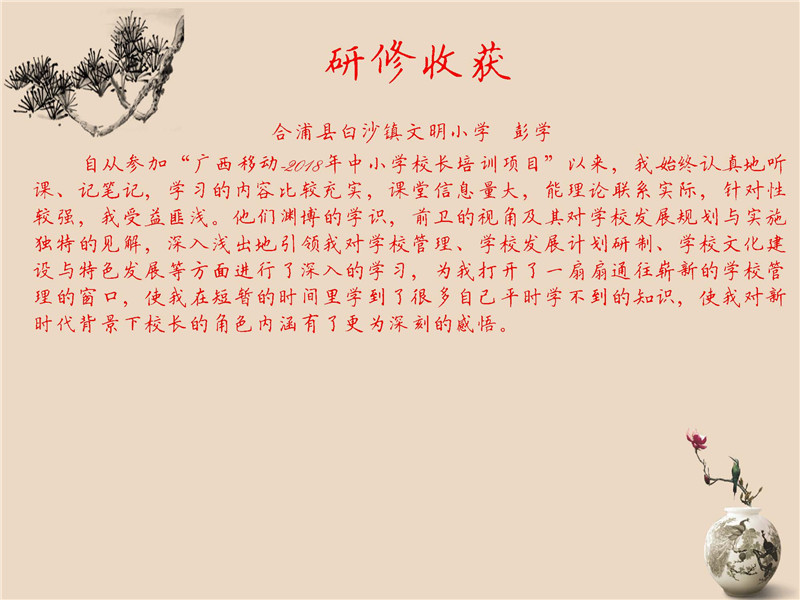 研修收获
合浦县白沙镇文明小学 彭学
自从参加“广西移动-2018年中小学校长培训项目”以来，我始终认真地听
课、记笔记，学习的内容比较充实，课堂信息量大，能理论联系实际，针对性
较强，我受益匪浅。他们渊博的学识，前卫的视角及其对学校发展规划与实施
独特的见解，深入浅出地引领我对学校管理、学校发展计划研制、学校文化建
设与特色发展等方面进行了深入的学习，为我打开了一扇扇通往崭新的学校管
理的窗口，使我在短暂的时间里学到了很多自己平时学不到的知识，使我对新
时代背景下校长的角色内涵有了更为深刻的感悟。